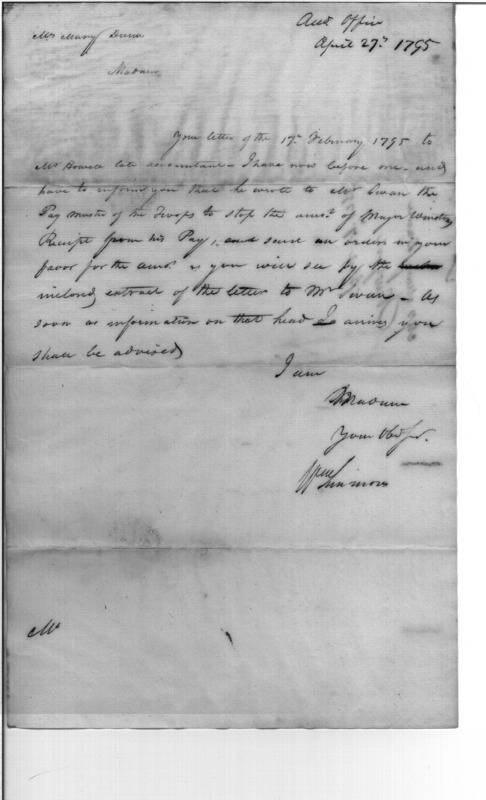 Acct Office
April 27th 1795
Mrs Mary Dunn
Madam
Your letter of the 17th February 1795 to
Mr Howell late accountant I have now before me and
have to inform you that he wrote to Mr Swan the
Pay master of the Troops to stop the amot of Major
Receipt from his Pay, and send an orders in your
favor for the amot as you will see by the
inclosed extract of the letter to Mr Swan - As
soon as information on that head arrives you
shall be advised
I am
Madam
Your Obd
Wm Simmons
Mr